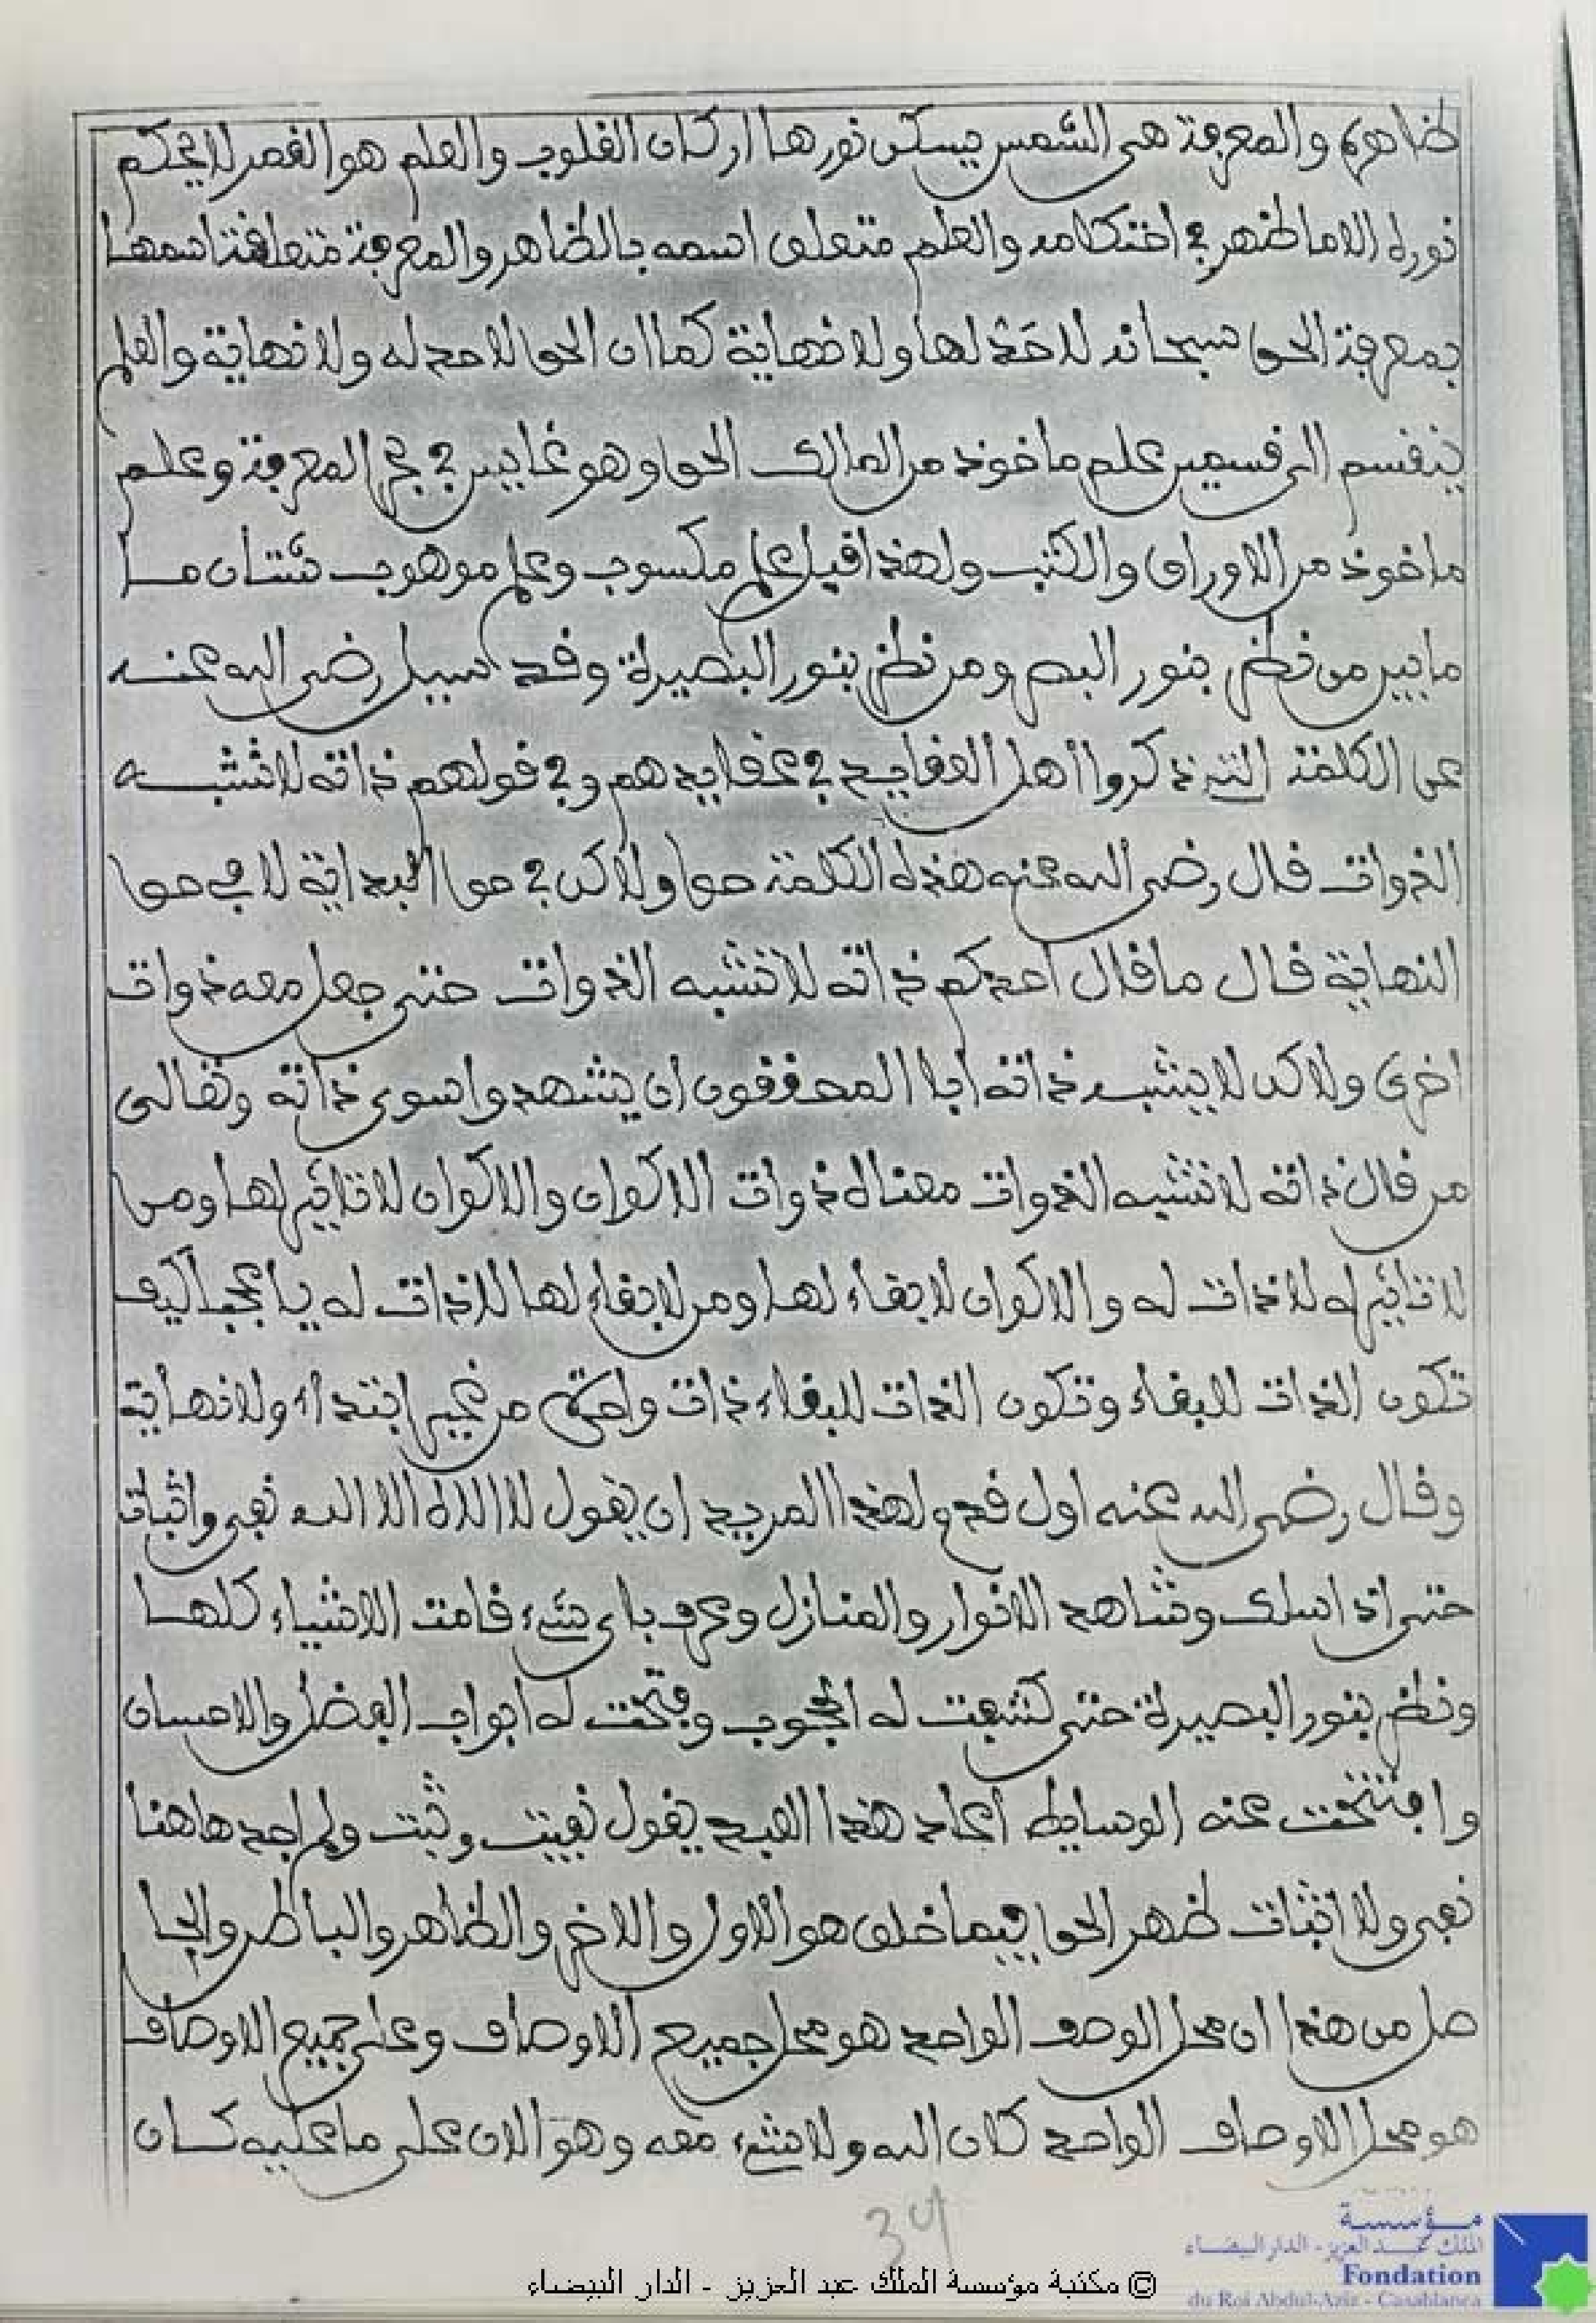 ظاهره والمعرفة هي الشمس يسكن نورها اركان القلوب والعلم هو القمر لا يحكم
نوره الا ما ظهر في احتكامه والعلم متعلق اسمه بالظاهر والمعرفة متعلقة اسمها
بمعرفة الحق سبحانه لا حد لها ولا نهاية كما ان الحق لا حد له ولا نهاية والعلم
ينقسم الى قسمين علم ماخوذ من المالك الحق وهو غايص في بحر المعرفة وعلم
ماخوذ من الاوراق والكتب ولهذا قيل علم مكسوب وعلم موهوب شتان ما
ما بين من نظر بنور البصر ومن نظر بنور البصيرة وقد سيل رضي الله عنه
عن الكلمة التي ذكروا اهل العقايد في عقايدهم وفي قولهم ذاته لا تشبه
الذوات قال رضي الله عنه هذه الكلمة حق ولاكن في حق البداية لا في حق
النهاية قال ما قال احدكم ذاته لا تشبه الذوات حتى جعل معه ذوات
اخرى ولاكن لا يشبه ذاته ابا المحققون ان يشهدوا سوى ذاته وتعالى
من قال ذاته لا تشبه الذوات معناه ذوات الاكوان والاكوان لا تاثير لها ومن
لا تاثير له لا ذات له والاكوان لا بقاء لها ومن لا بقاء لها لا ذات له يا عجبا كيف
تكون الذات للبقاء وتكون الذات للبقاء ذات واحدة من غير ابتداء ولا نهاية
وقال رضي الله عنه اول قدم لهذا المريد ان يقول لا الاه الا الله نفي واثبات
حتى اذا سلك وشاهد الانوار والمنازل وعرف باي شيء قامت الاشياء كلها
ونظر بنور البصيرة حتى كشفت له الحجوب وفتحت له ابواب الفضل والاحسان
وافتتحت عنه الوسايط اعاد هذا العبد يقول نفيت وثبت ولم اجد هاهنا
نفي ولا اثبات ظهر الحق فيما خلق هو الاول والاخر والظاهر والباطن والحا
صل من هذا ان محل الوصف الواحد هو محل جميع الاوصاف وعلى جميع الاوصاف
هو محل الاوصاف الواحد كان الله ولا شيء معه وهو الان على ما عليه كان
34
© مكتبة مؤسسة الملك عبد العزيز - الدار البيضاء
مؤسسة
الملك عبد العزيز - الدار البيضاء
Fondation
du Roi Abdul-Aziz - Casablanca